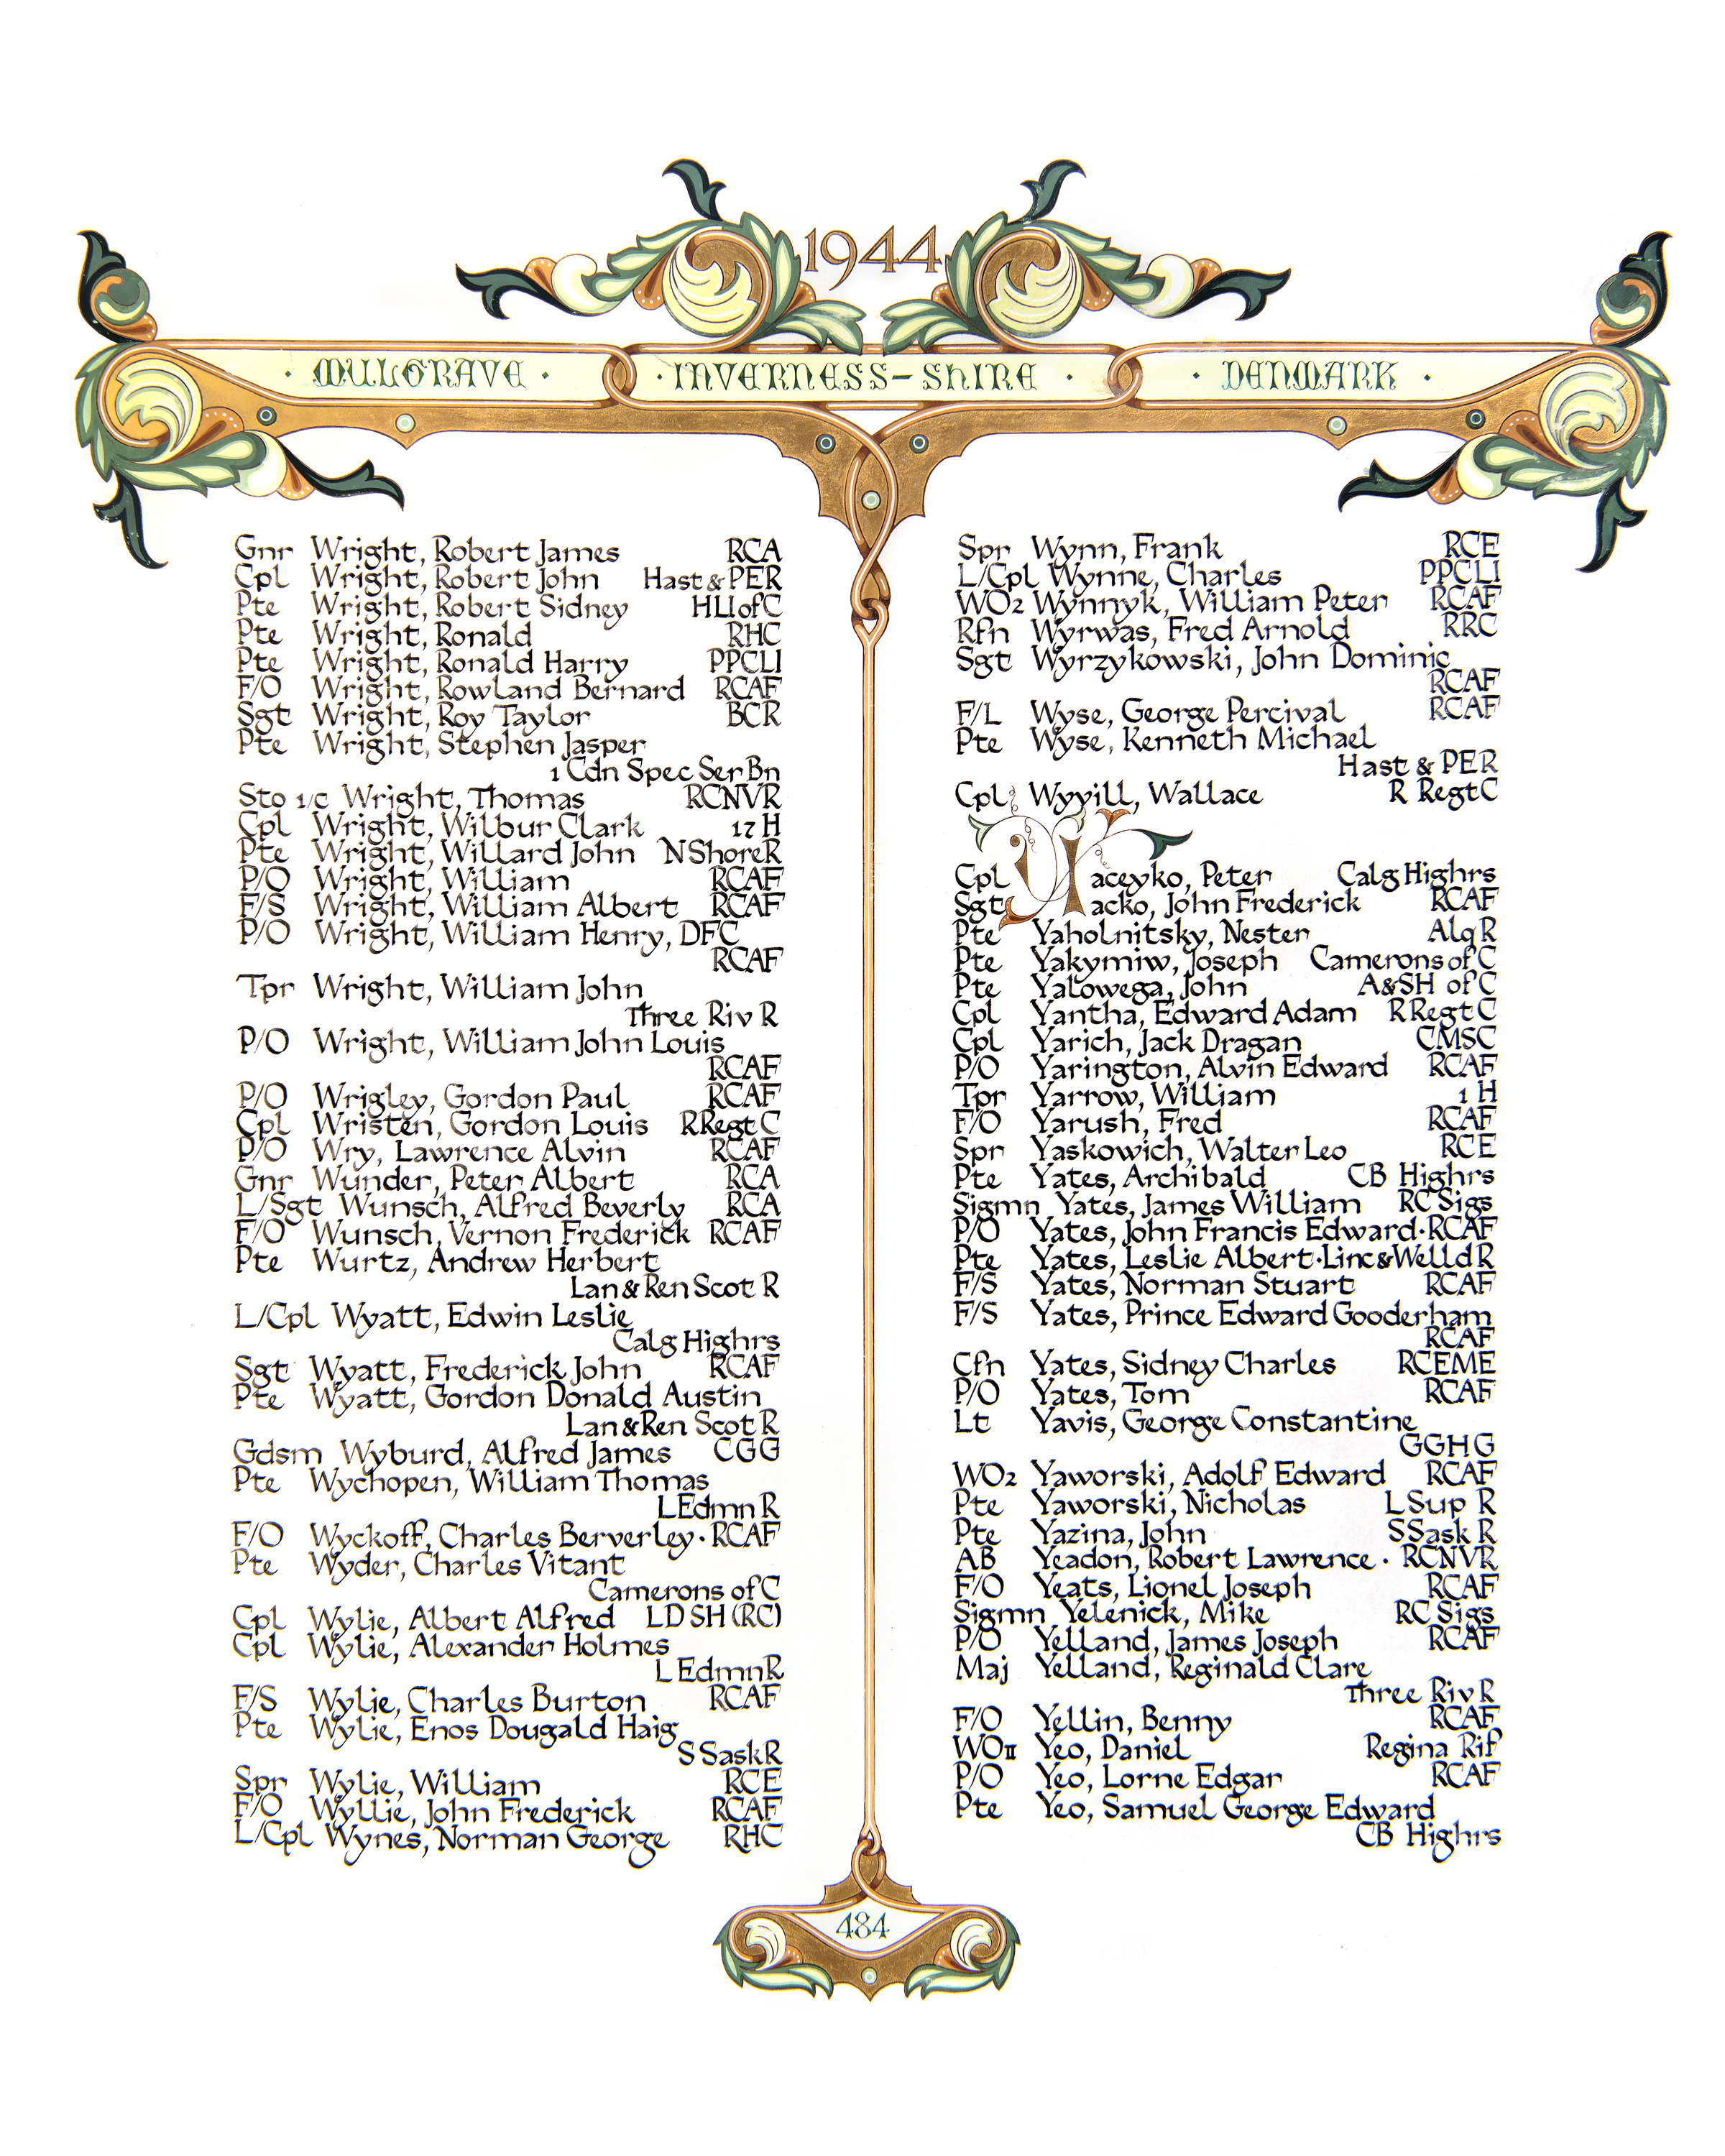 1944
· MULGRAVE · · INVERNESS-SHIRE · · DENMARK ·
Gnr Wright, Robert James RCA
Cpl Wright, Robert John Hast & PER
Pte Wright, Robert Sidney HLI of C
Pte Wright, Ronald RHC
Pte Wright, Ronald Harry PPCLI
F/O Wright, Rowland Bernard RCAF
Sgt Wright, Roy Taylor BCR
Pte Wright, Stephen Jasper
1 Cdn Spec Ser Bn
Sto 1/c Wright, Thomas RCNVR
Cpl Wright, Wilbur Clark 17 H
Pte Wright, Willard John N Shore R
P/O Wright, William RCAF
F/S Wright, William Albert RCAF
P/O Wright, William Henry, DFC
RCAF
Tpr Wright, William John
Three Riv R
P/O Wright, William John Louis
RCAF
P/O Wrigley, Gordon Paul RCAF
Cpl Wristen, Gordon Louis R Regt C
P/O Wry, Lawrence Alvin RCAF
Gnr Wunder, Peter Albert RCA
L/Sgt Wunsch, Alfred Beverly RCA
F/O Wunsch, Vernon Frederick RCAF
Pte Wurtz, Andrew Herbert
Lan & Ren Scot R
L/Cpl Wyatt, Edwin Leslie
Calg Highrs
Sgt Wyatt, Frederick John RCAF
Pte Wyatt, Gordon Donald Austin
Lan & Ren Scot R
Gdsm Wyburd, Alfred James CGG
Pte Wychopen, William Thomas
L Edmn R
F/O Wyckoff, Charles Berverley · RCAF
Pte Wyder, Charles Vitant
Camerons of C
Cpl Wylie, Albert Alfred LD SH (RC)
Cpl Wylie, Alexander Holmes
L Edmn R
F/S Wylie, Charles Burton RCAF
Pte Wylie, Enos Dougald Haig
S Sask R
Spr Wylie, William RCE
F/O Wyllie, John Frederick RCAF
L/Cpl Wynes, Norman George RHC
Spr Wynn, Frank RCE
L/Cpl Wynne, Charles PPCLI
WO2 Wynnyk, William Peter RCAF
Rfn Wyrwas, Fred Arnold RRC
Sgt Wyrzykowski, John Dominic
RCAF
F/L Wyse, George Percival RCAF
Pte Wyse, Kenneth Michael
Hast & PER
Cpl Wyvill, Wallace R Regt C
Cpl Yaceyko, Peter Calg Highrs
Sgt Yacko, John Frederick RCAF
Pte Yaholnitsky, Nester Alq R
Pte Yakymiw, Joseph Camerons of C
Pte Yalowega, John A&SH of C
Cpl Yantha, Edward Adam R Regt C
Cpl Yarich, Jack Dragan CMSC
P/O Yarington, Alvin Edward RCAF
Tpr Yarrow, William 1 H
F/O Yarush, Fred RCAF
Spr Yaskowich, Walter Leo RCE
Pte Yates, Archibald CB Highrs
Sigmn Yates, James William RC Sigs
P/O Yates, John Francis Edward · RCAF
Pte Yates, Leslie Albert · Linc & Welld R
F/S Yates, Norman Stuart RCAF
F/S Yates, Prince Edward Gooderham
RCAF
Cfn Yates, Sidney Charles RCEME
P/O Yates, Tom RCAF
Lt Yavis, George Constantine
GGHG
WO2 Yaworski, Adolf Edward RCAF
Pte Yaworski, Nicholas L Sup R
Pte Yazina, John S Sask R
AB Yeadon, Robert Lawrence · RCNVR
F/O Yeats, Lionel Joseph RCAF
Sigmn Yelenick, Mike RC Sigs
P/O Yelland, James Joseph RCAF
Maj Yelland, Reginald Clare
Three Riv R
F/O Yellin, Benny RCAF
WOII Yeo, Daniel Regina Rif
P/O Yeo, Lorne Edgar RCAF
Pte Yeo, Samuel George Edward
CB Highrs
484